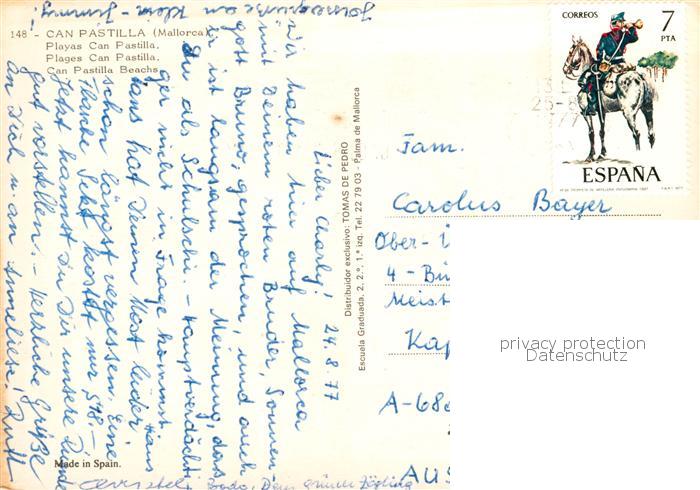 148 - CAN PASTILLA (Mallorca)
Playas Can Pastilla.
Plages Can Pastilla.
Can Pastilla Beachs
24.8.77
Lieber Charly!
Wir haben hier auf Mallorca
mit Deinem roten Bruder, Sonnen-
gott Bruno, gesprochen, und auch
er ist langsam der Meinung, das
Du als Schulschi. - Hauptverdächti-
ger nicht in Frage kommst. -
Hans hat Deinen Most leider
schon längst vergessen. Eine
Flasche Sekt kostet nur 598.-
Jetzt kannst Du Dir unsere Runde
gut vorstellen. - Herzliche Grüße
an Dich u. an Anneliese! Ruth
Hans
an Klein - Jimmy!
Made in Spain.
Distribuidor exclusivo: TOMAS DE PEDRO
Escuela Graduada, 2, 2.º, 1.ª izq. Tel. 22 79 03 - Palma de Mallorca
CORREOS
7
PTA
ESPAÑA
77
Fam.
Carolus Bayer
Ober-
4 - Bü
Meist
Kap
A-68
AUS
privacy protection
Datenschutz